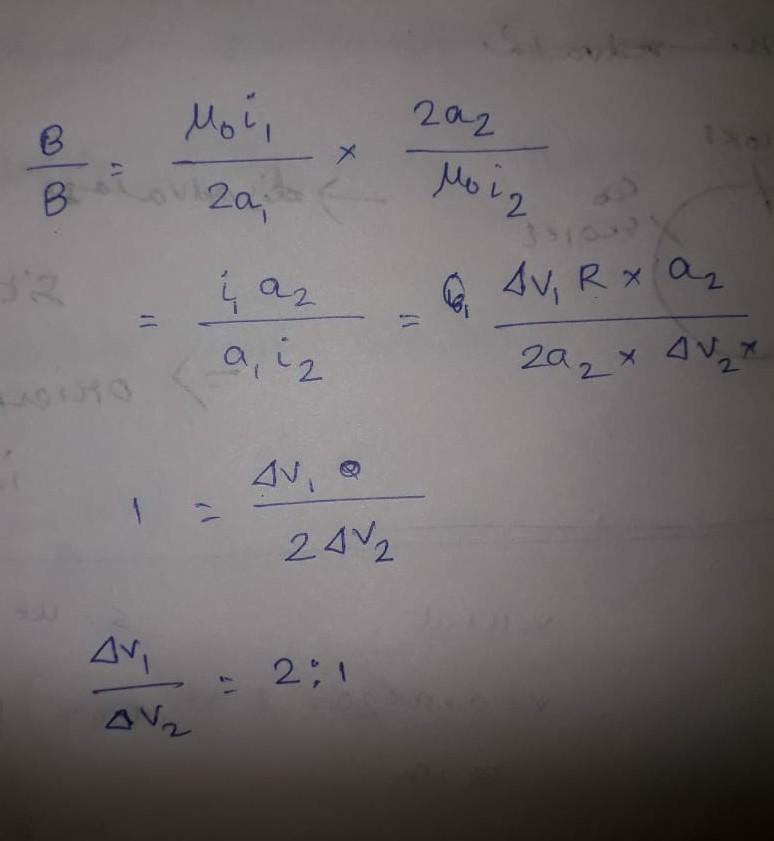 B/B = μ₀i₁/2a₁ × 2a₂/μ₀i₂
= i₁a₂/a₁i₂ = ΔV₁ R × a₂/2a₂ × ΔV₂ ×
1 = ΔV₁/2ΔV₂
ΔV₁/ΔV₂ = 2:1